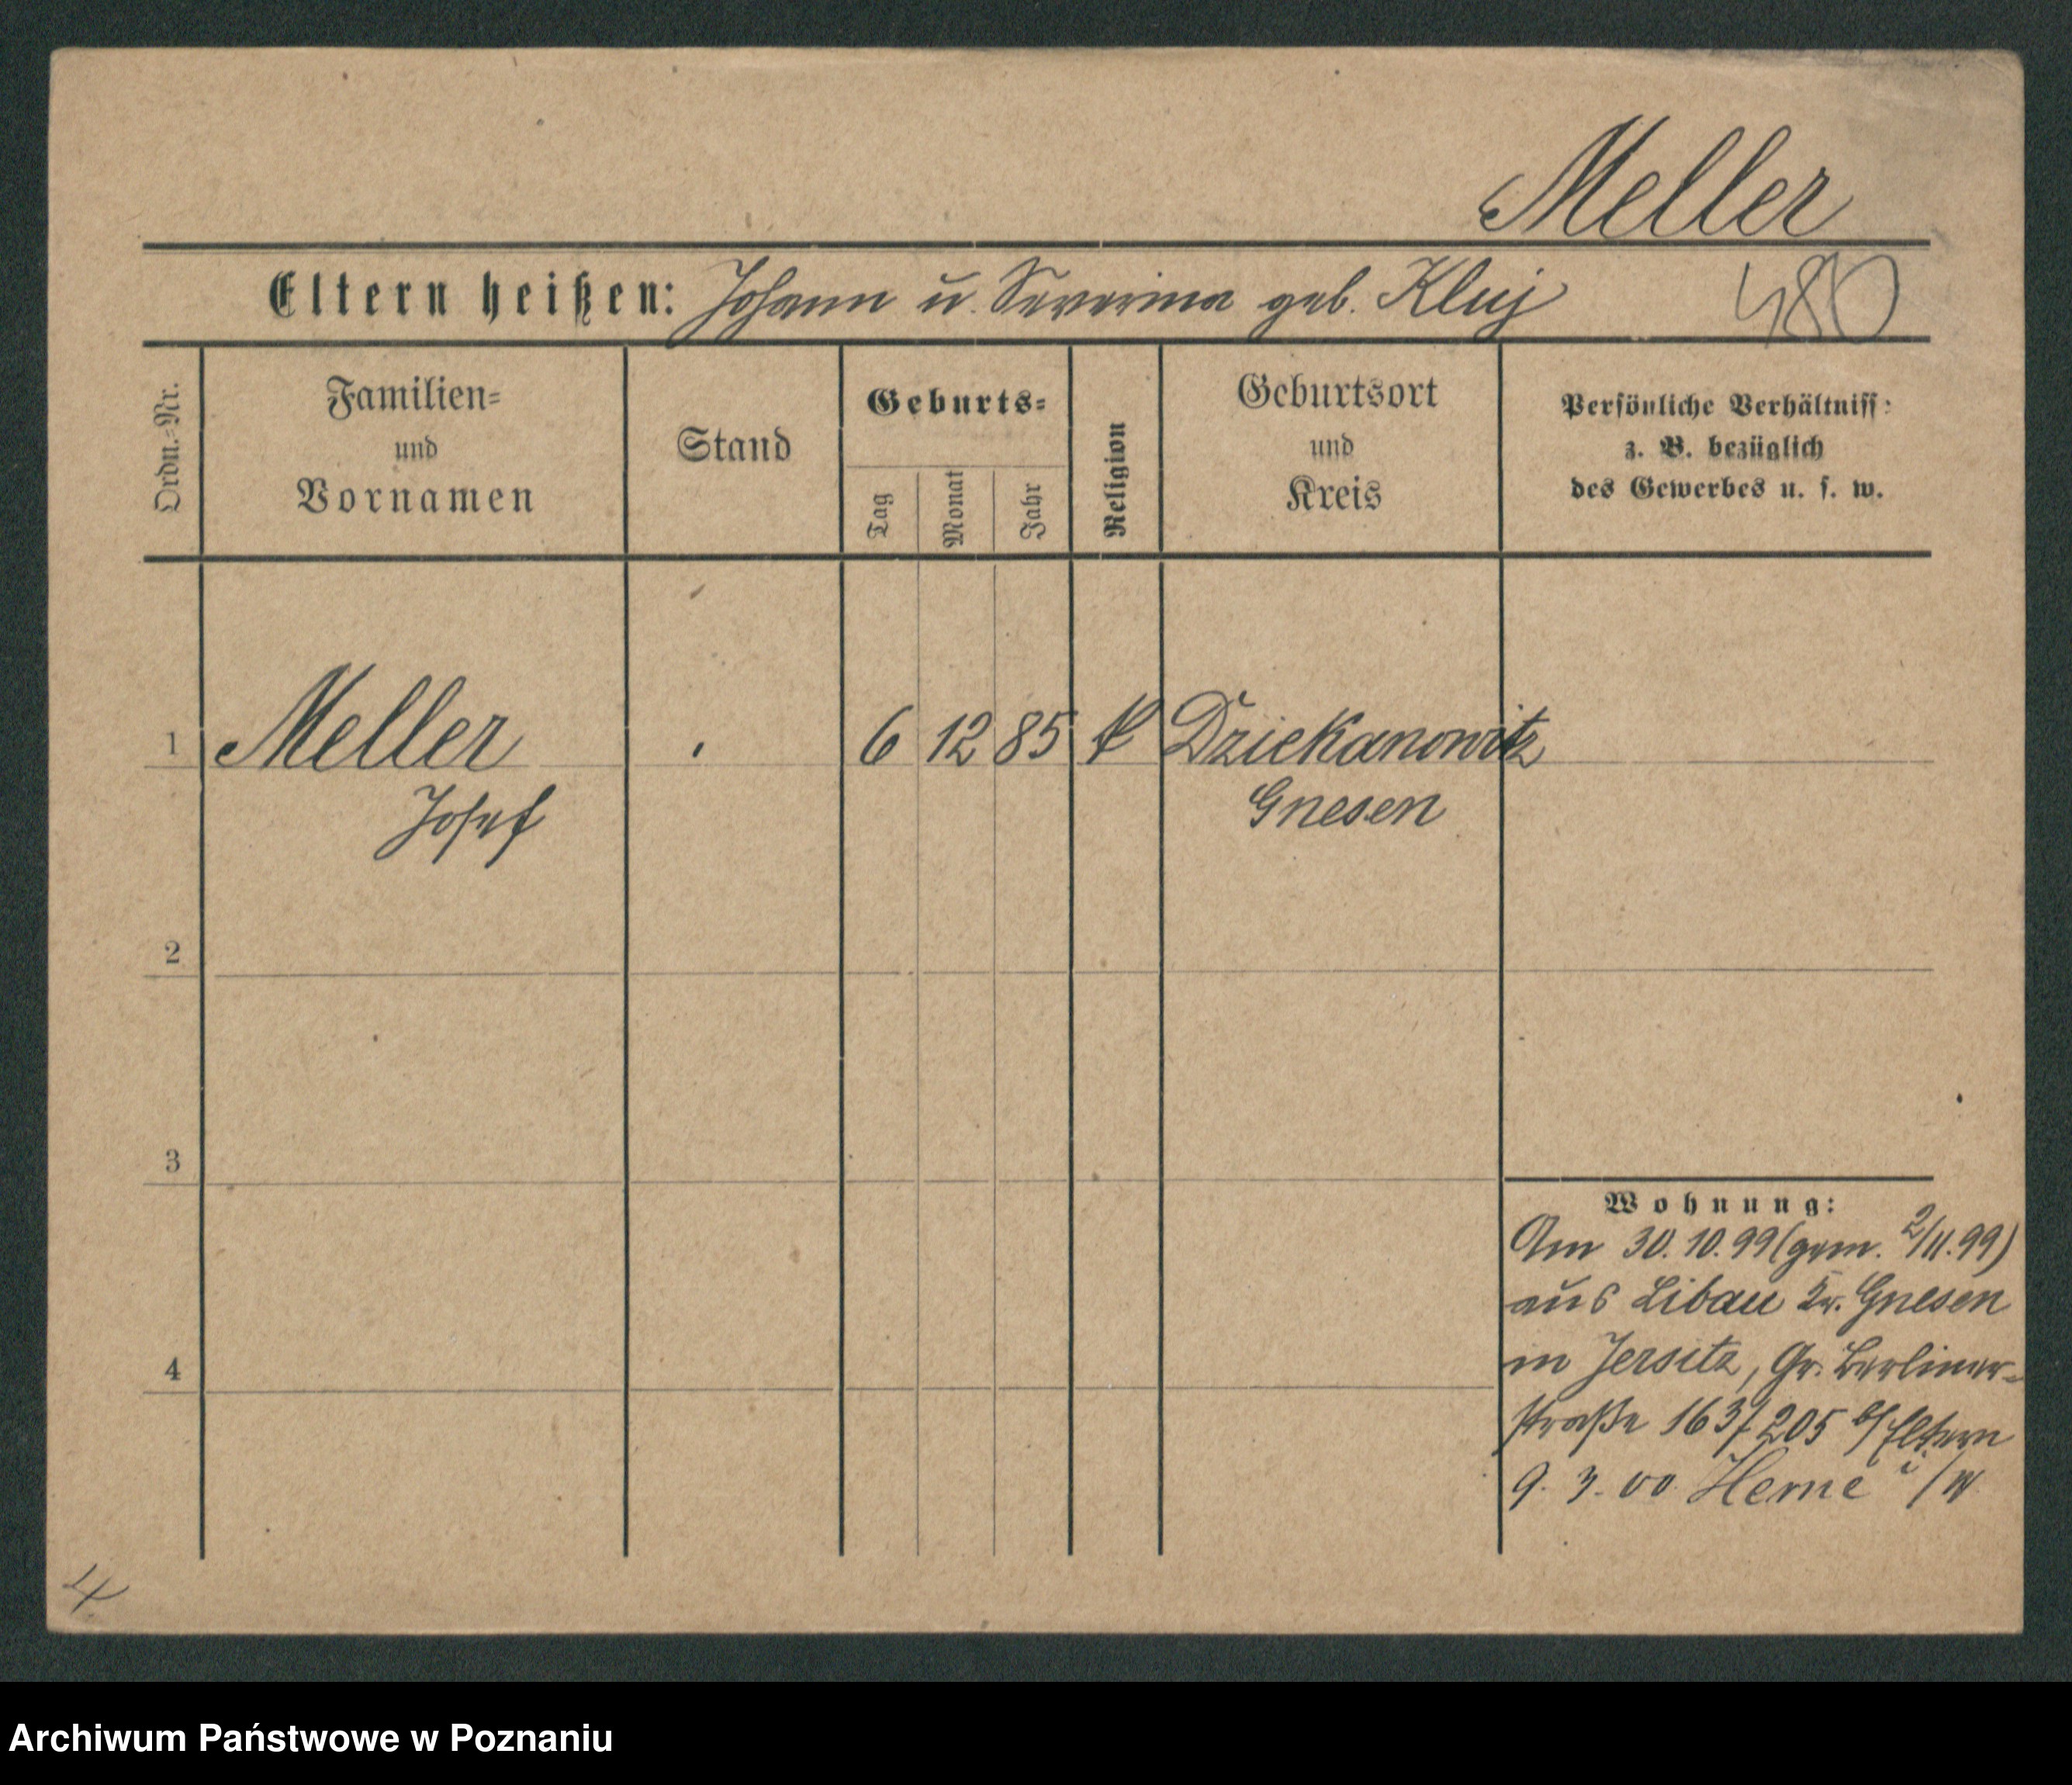 Meller
Eltern heißen: Johann u. Severina geb. Kluj 480
Ordn.-Nr.
Familien-
und
Vornamen
Stand
Geburts-
Tag
Monat
Jahr
Religion
Geburtsort
und
Kreis
Persönliche Verhältniss:
z. B. bezüglich
des Gewerbes u. s. w.
1 Meller 6 12 85 k Dziekanowitz
Josef Gnesen
2
3
4
Wohnung:
Am 30.10.99 (gem. 2/11.99)
aus Libau Kr. Gnesen
in Jersitz, Gr. Berliner-
straße 163/205 b/Eltern
9. 3. 00 Herne i/W
4.
Archiwum Państwowe w Poznaniu